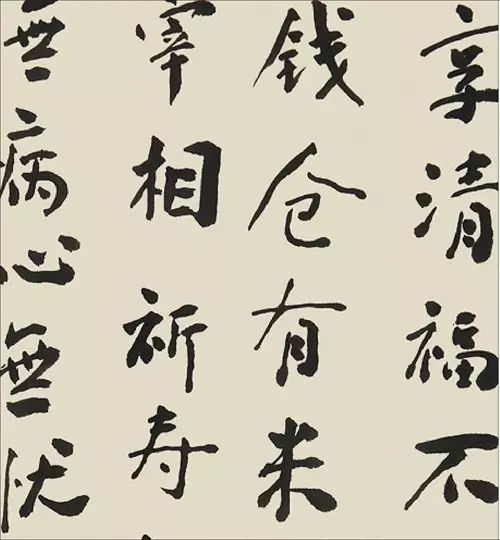 享清福不
钱仓有米
宰相祈寿
無病心無忧